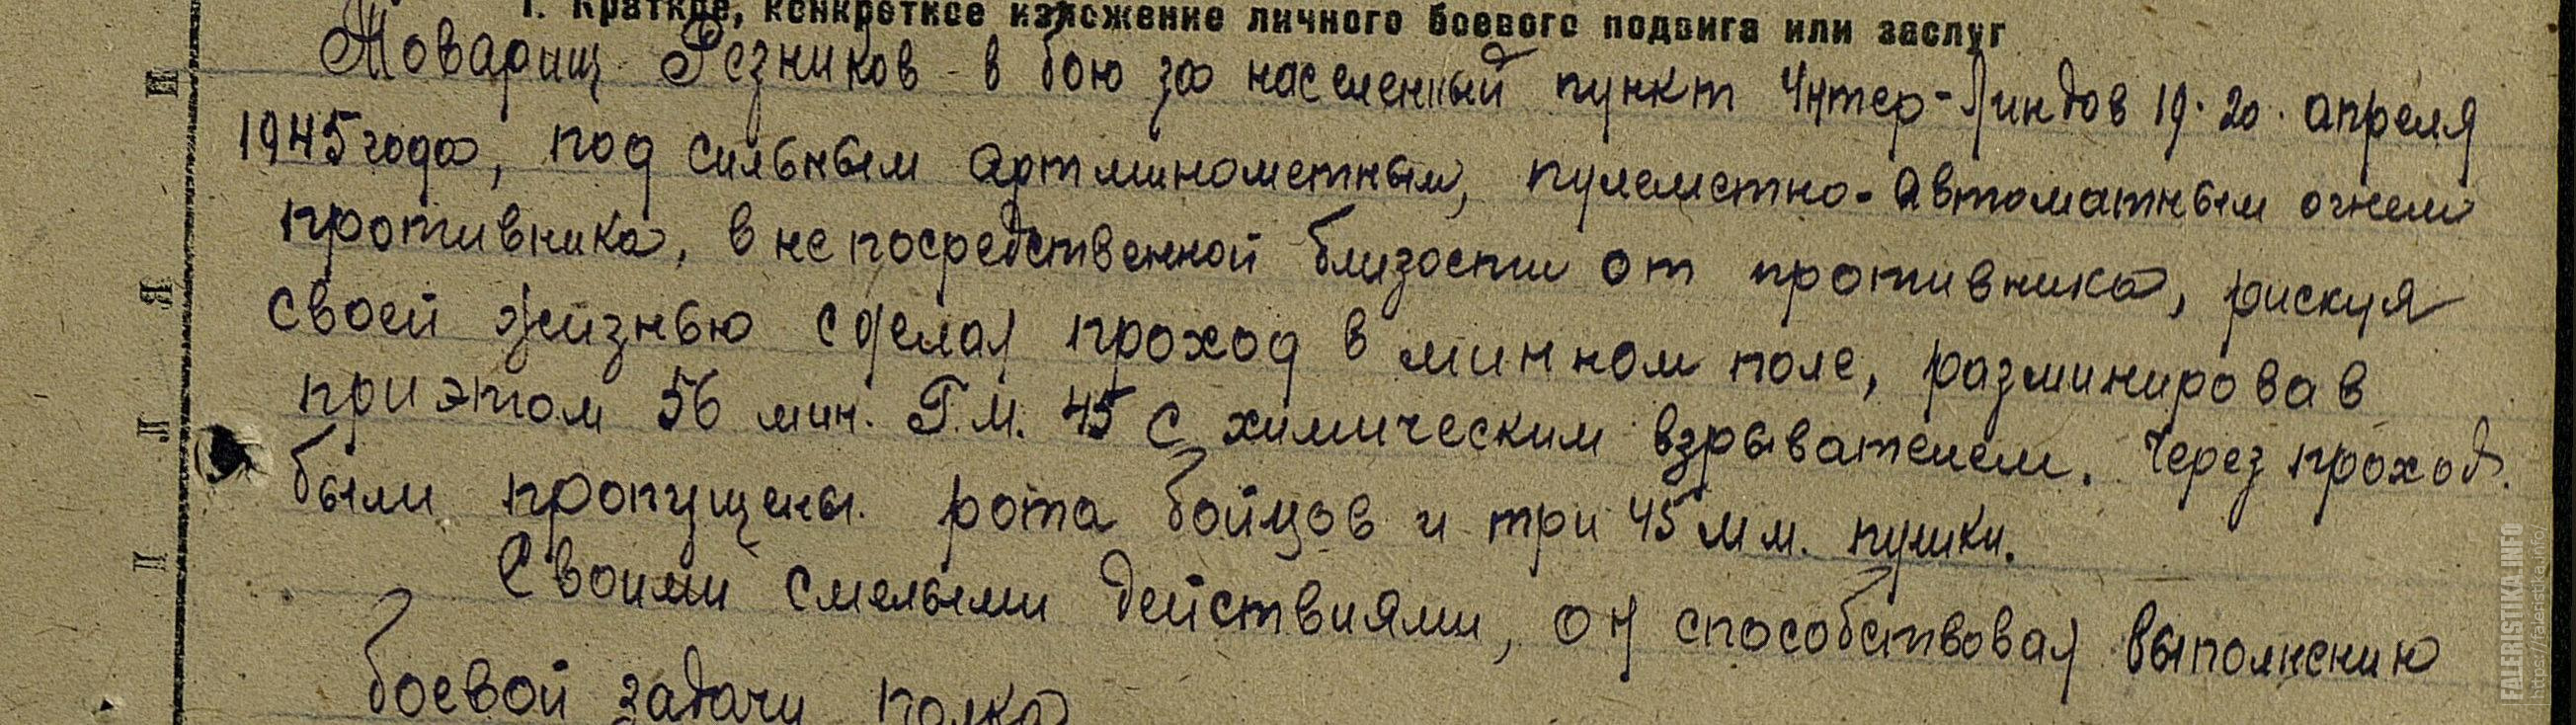 1. Краткое, конкретное изложение личного боевого подвига или заслуг
Товарищ Резников в бою за населенный пункт Унтер-Линдов 19.20. апреля
1945 года, под сильным артминометным, пулеметно-автоматным огнем
противника, в непосредственной близости от противника, рискуя
своей жизнью сделал проход в минном поле, разминировав
при этом 56 мин. Т.М. 45 с химическим взрывателем. Через проход.
были пропущены. рота бойцов и три 45 мм. пушки.
Своими смелыми действиями, он способствовал выполнению
боевой задачи полка
FALERISTIKA.INFO
https://faleristika.info/